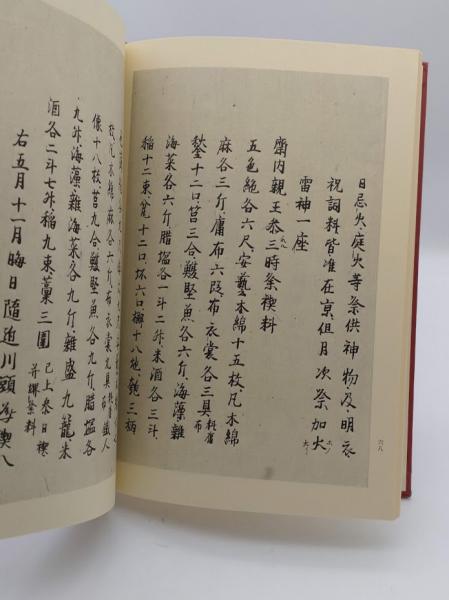 日忌火庭火等祭供神物及明衣
祝詞料皆准在京但月次祭加火
雷神一座
齋内親王参三時祭禊料
五色絁各六尺安藝木綿十五枚凡木綿
麻各三斤庸布六段布衣裳各三具料庸布
鍬十二口筥三合鰒堅魚各六斤海藻雜
海菜各六斤腊塩各一斗二升米酒各三斗
稲十二束瓮十二口坏六口槲十八把匏三柄
六八
木綿麻各六斤布衣裳九具 鐵人
像十八枚筥九合鰒堅魚各九斤腊塩各
九升海藻雜海菜各九斤雜盛九籠米
酒各二斗七升稲九束藁三圍已上参日禊
并解祭料
右五月十一月晦日隨近川頭為禊八